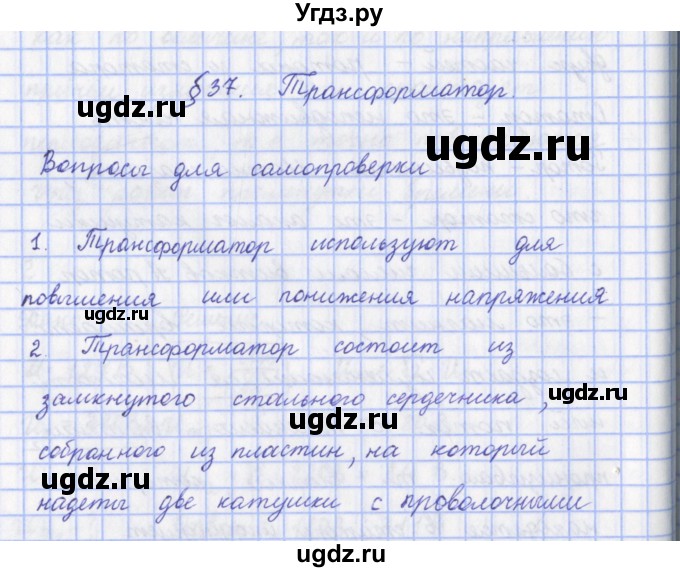 Угдз.ру
§37. Трансформатор.
ugdz.ru
ugdz.ru
ugdz.ru
Вопросы для самопроверки
1. Трансформатор используют для
повышения или понижения напряжения
ugdz.ru
2. Трансформатор состоит из
замкнутого стального сердечника,
ugdz.ru
ugdz.ru
собранного из пластин, на который
ugdz.ru
надеты две катушки с проволочными
ugdz.ru
ugdz.ru